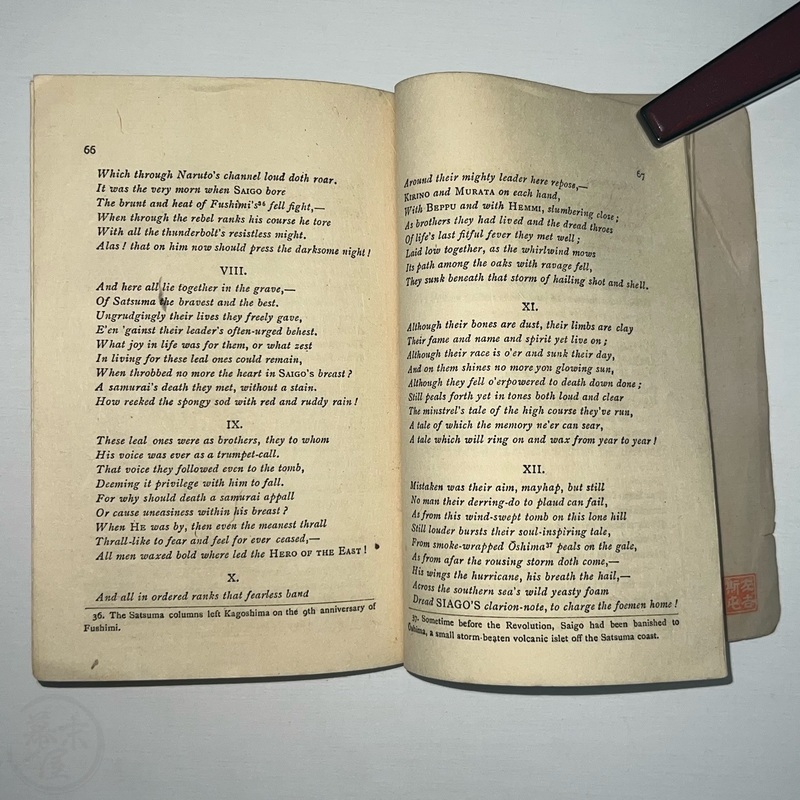 66
Which through Naruto's channel loud doth roar.
It was the very morn when SAIGO bore
The brunt and heat of Fushimi's³⁶ fell fight,—
When through the rebel ranks his course he tore
With all the thunderbolt's resistless might.
Alas! that on him now should press the darksome night!
VIII.
And here all lie together in the grave,—
Of Satsuma the bravest and the best.
Ungrudgingly their lives they freely gave,
E'en 'gainst their leader's often-urged behest.
What joy in life was for them, or what zest
In living for these leal ones could remain,
When throbbed no more the heart in SAIGO's breast?
A samurai's death they met, without a stain.
How reeked the spongy sod with red and ruddy rain!
IX.
These leal ones were as brothers, they to whom
His voice was ever as a trumpet-call.
That voice they followed even to the tomb,
Deeming it privilege with him to fall.
For why should death a samurai appall
Or cause uneasiness within his breast?
When HE was by, then even the meanest thrall
Thrall-like to fear and feel for ever ceased,—
All men waxed bold where led the HERO OF THE EAST!
X.
And all in ordered ranks that fearless band
36. The Satsuma columns left Kagoshima on the 9th anniversary of
Fushimi.
67
Around their mighty leader here repose,—
KIRINO and MURATA on each hand,
With BEPPU and with HEMMI, slumbering close;
As brothers they had lived and the dread throes
Of life's last fitful fever they met well;
Laid low together, as the whirlwind mows
Its path among the oaks with ravage fell,
They sunk beneath that storm of hailing shot and shell.
XI.
Although their bones are dust, their limbs are clay
Their fame and name and spirit yet live on;
Although their race is o'er and sunk their day,
And on them shines no more yon glowing sun,
Although they fell o'erpowered to death down done;
Still peals forth yet in tones both loud and clear
The minstrel's tale of the high course they've run,
A tale of which the memory ne'er can sear,
A tale which will ring on and wax from year to year!
XII.
Mistaken was their aim, mayhap, but still
No man their derring-do to plaud can fail,
As from this wind-swept tomb on this lone hill
Still louder bursts their soul-inspiring tale,
From smoke-wrapped Ōshima³⁷ peals on the gale,
As from afar the rousing storm doth come,—
His wings the hurricane, his breath the hail,—
Across the southern sea's wild yeasty foam
Dread SIAGO'S clarion-note, to charge the foemen home!
37. Sometime before the Revolution, Saigo had been banished to
Ōshima, a small storm-beaten volcanic islet off the Satsuma coast.